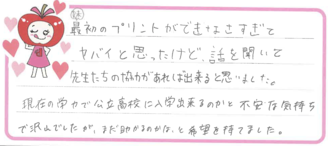 最初のプリントができなさすぎて
ヤバイと思ったけど、話を聞いて
先生たちの協力があれば出来ると思いました。
現在の学力で公立高校に入学出来るのかと不安な気持ち
で沢山でしたが、まだ助かるのかな、と希望を持てました。